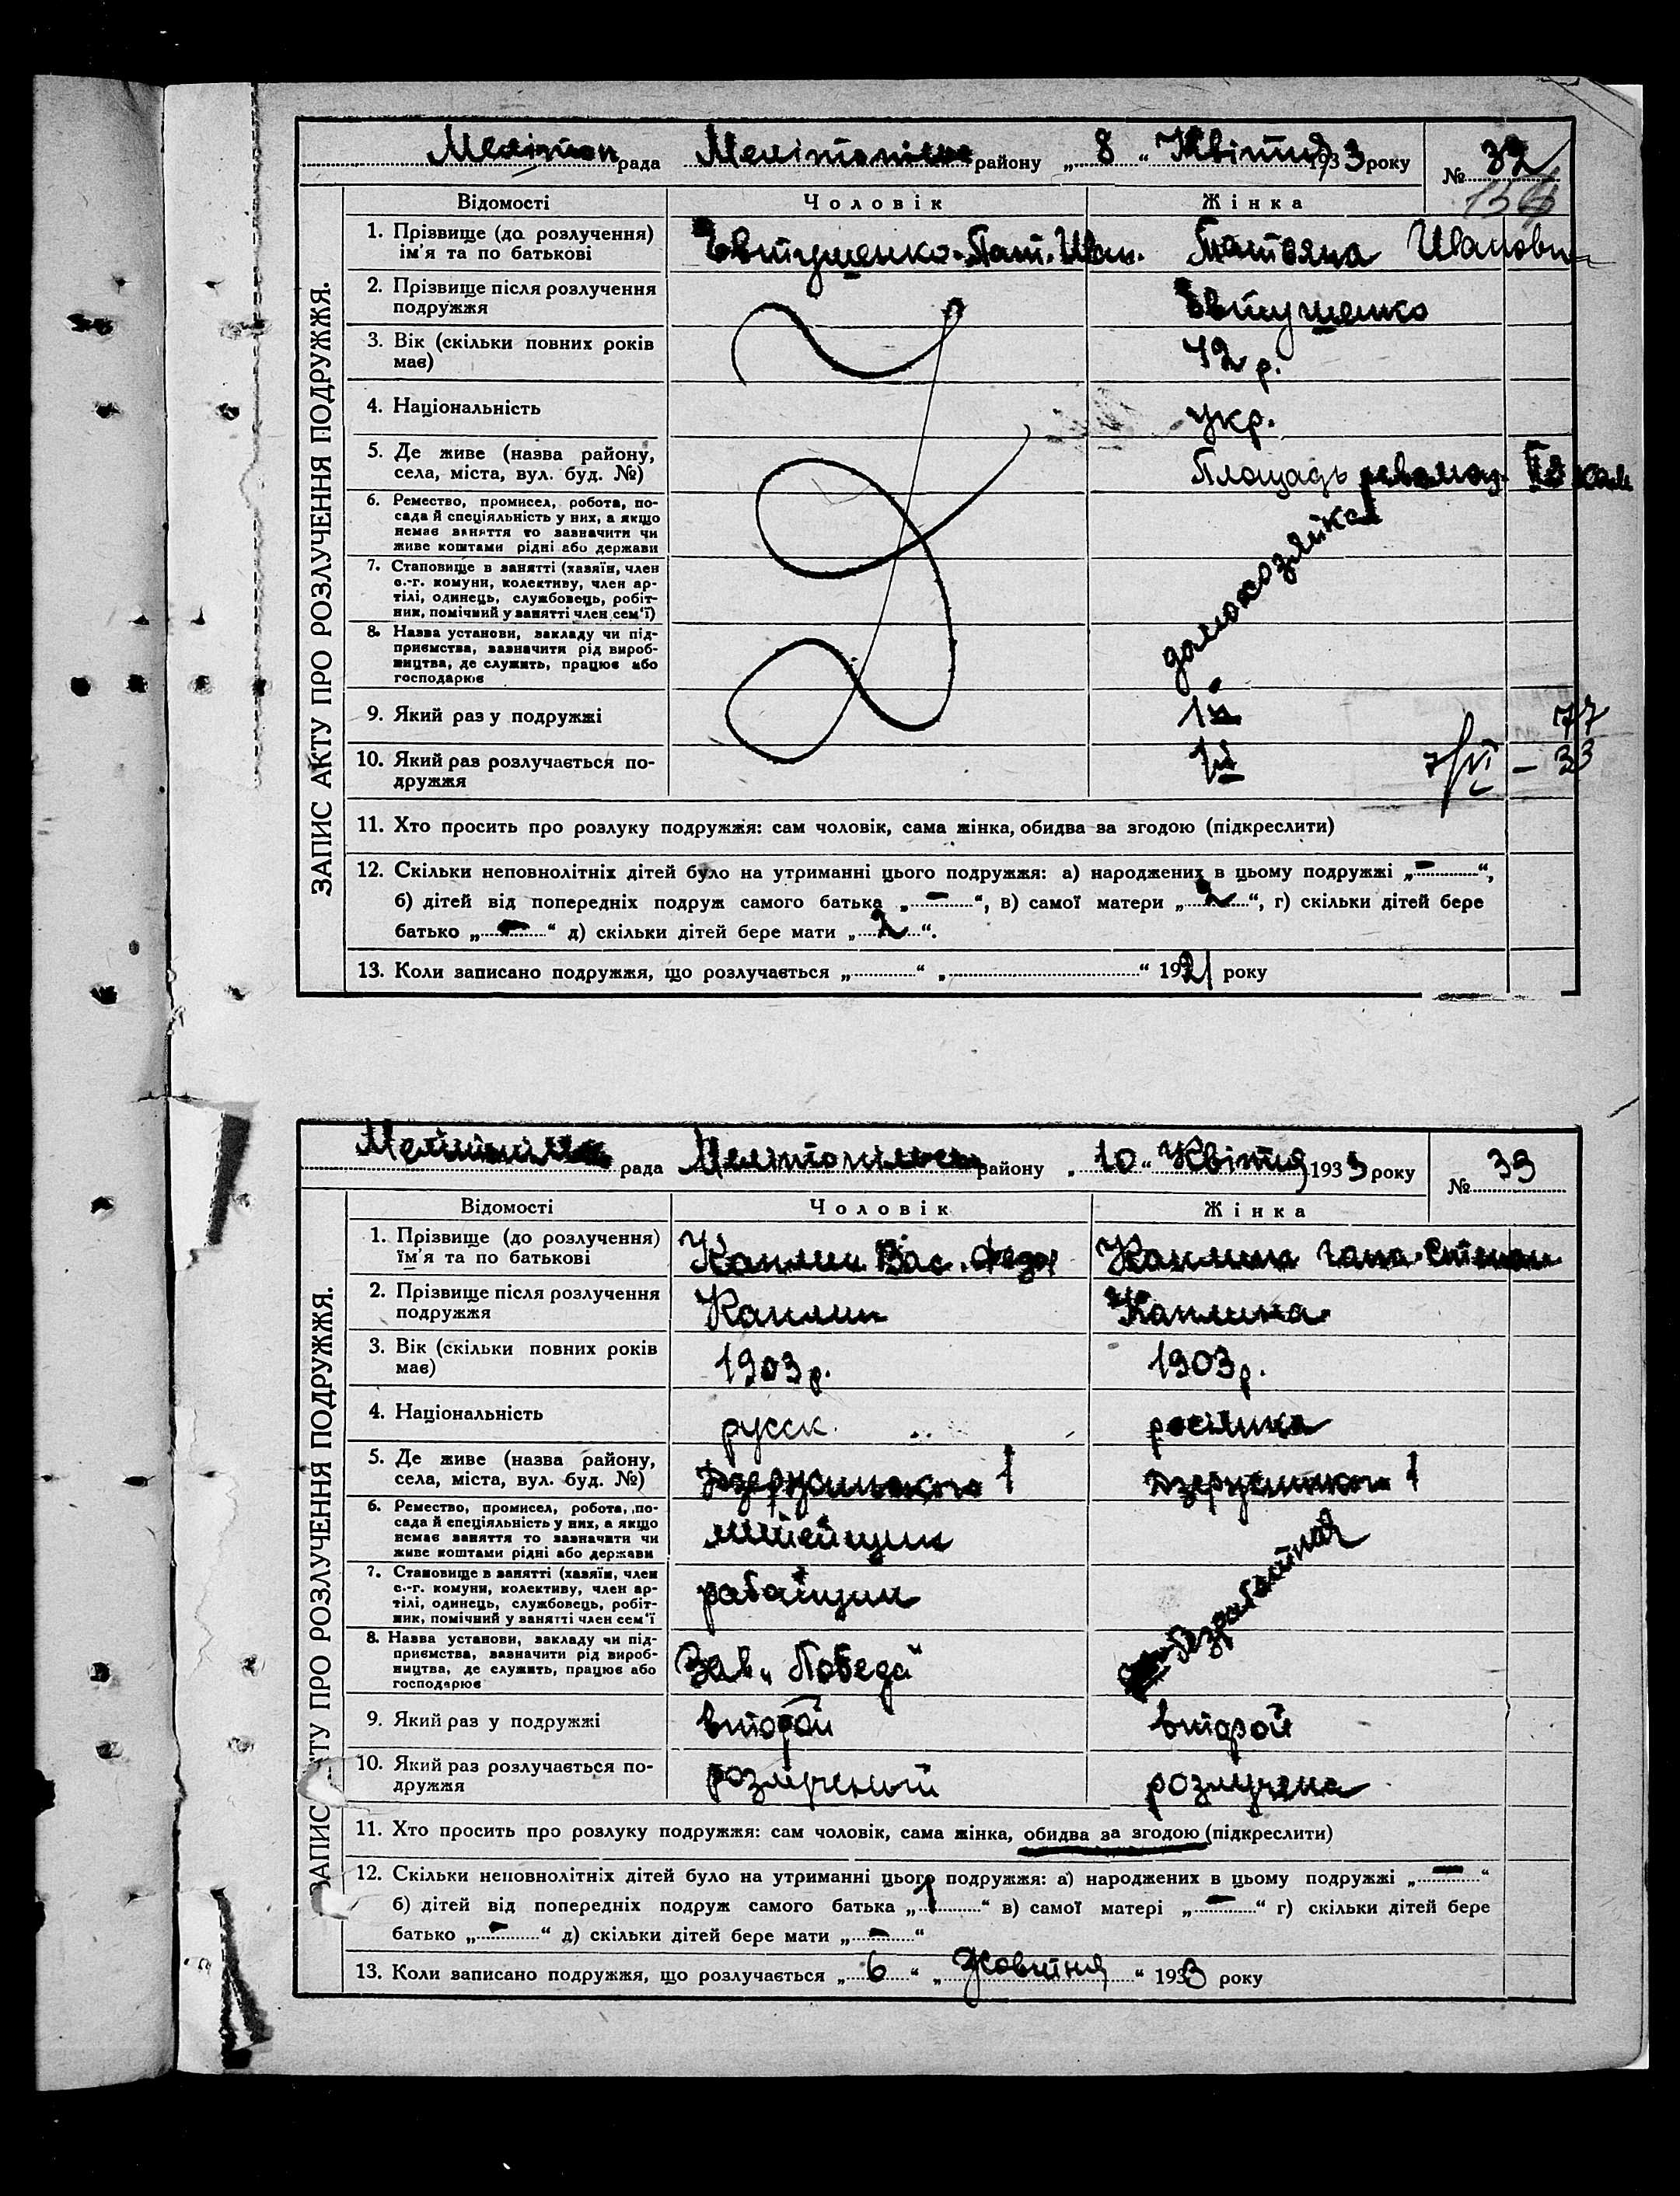 ЗАПИС АКТУ ПРО РОЗЛУЧЕННЯ ПОДРУЖЖЯ.
Мелітоп рада Мелітопільськ району „ 8 “ Квітня 1933 року № 32
Відомості Чоловік Жінка
1. Прізвище (до розлучення) ім'я та по батькові Євтушенко Тат. Иван. Татьяна Ивановн
2. Прізвище після розлучення подружжя Євтушенко
3. Вік (скільки повних років має) 42 р.
4. Національність укр.
5. Де живе (назва району, села, міста, вул. буд. №) Площадь революц.
6. Ремество, промисел, робота, посада й спеціяльність у них, а якщо немає заняття то зазначити чи живе коштами рідні або держави домохозяйка
7. Становище в занятті (хазяїн, член с.-г. комуни, колективу, член артілі, одинець, службовець, робітник, помічний у занятті член сем'ї)
8. Назва установи, закладу чи підприємства, зазначити рід виробництва, де служить, працює або господарює
9. Який раз у подружжі 1й
10. Який раз розлучається подружжя 1й 7/VI – 33
11. Хто просить про розлуку подружжя: сам чоловік, сама жінка, обидва за згодою (підкреслити)
12. Скільки неповнолітніх дітей було на утриманні цього подружжя: а) народжених в цьому подружжі „ – “,
б) дітей від попередніх подруж самого батька „ – “, в) самої матери „ 2 “, г) скільки дітей бере
батько „ – “ д) скільки дітей бере мати „ 2 “.
13. Коли записано подружжя, що розлучається „ “ „ “ 1921 року
ЗАПИС АКТУ ПРО РОЗЛУЧЕННЯ ПОДРУЖЖЯ.
рада Мелітопільськ району „ 10 “ Квітня 1933 року № 33
Відомості Чоловік Жінка
1. Прізвище (до розлучення) ім'я та по батькові Каплин Вас. Федор Каплин Ганa Степан
2. Прізвище після розлучення подружжя Каплин Каплина
3. Вік (скільки повних років має) 1903 р. 1903 р.
4. Національність русск. росіянка
5. Де живе (назва району, села, міста, вул. буд. №) Дзержинського 1 Дзержинского 1
6. Ремество, промисел, робота, посада й спеціяльність у них, а якщо немає заняття то зазначити чи живе коштами рідні або держави литейщик безработная
7. Становище в занятті (хазяїн, член с.-г. комуни, колективу, член артілі, одинець, службовець, робітник, помічний у занятті член сем'ї
8. Назва установи, закладу чи підприємства, зазначити рід виробництва, де служить, працює або господарює Зав „Победа“
9. Який раз у подружжі второй второй
10. Який раз розлучається подружжя розлученый розлучена
11. Хто просить про розлуку подружжя: сам чоловік, сама жінка, обидва за згодою (підкреслити)
12. Скільки неповнолітніх дітей було на утриманні цього подружжя: а) народжених в цьому подружжі „ – “
б) дітей від попередніх подруж самого батька „ 1 “ в) самої матері „ – “ г) скільки дітей бере
батько „ – “ д) скільки дітей бере мати „ – “
13. Коли записано подружжя, що розлучається „ 6 “ „ Жовтня “ 1933 року